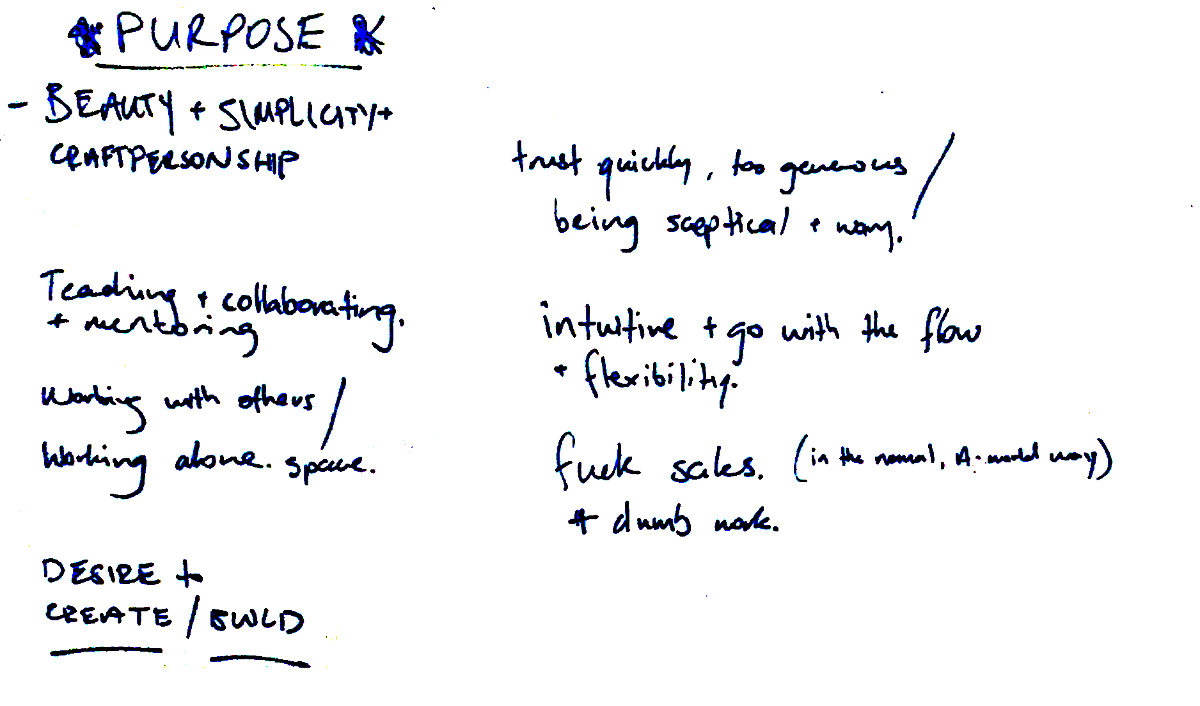 PURPOSE
- BEAUTY + SIMPLICITY +
CRAFTPERSONSHIP
Teaching + collaborating.
+ mentoring
Working with others /
Working alone. space.
DESIRE to
CREATE / BUILD
trust quickly, too generous /
being sceptical + wary.
intuitive + go with the flow
+ flexibility.
fuck sales. (in the normal, A-world way)
+ dumb work.